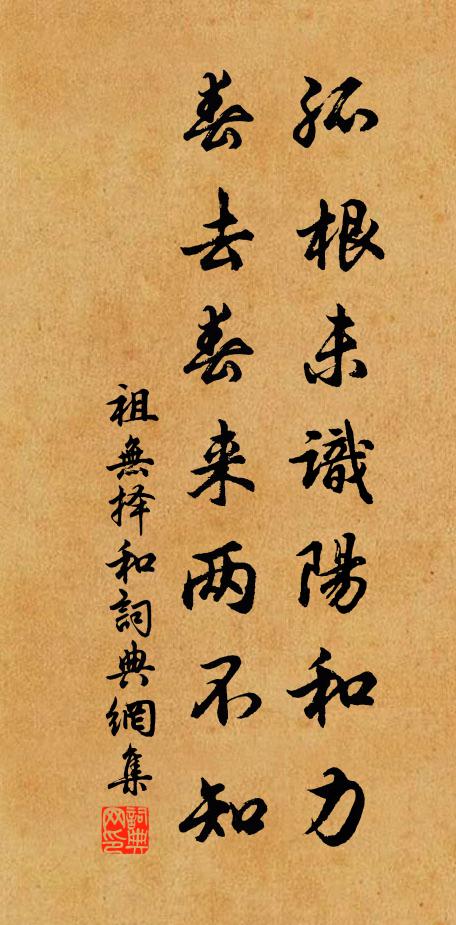 孤根未識陽和力
春去春来两不知
祖無择和詞典網集
詞典网印